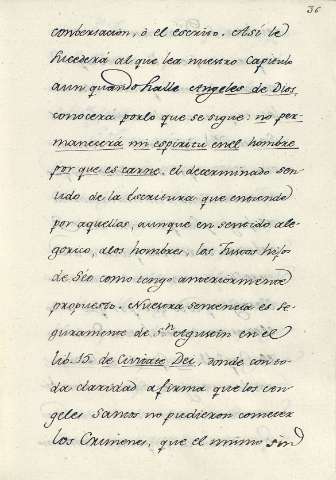 36
conversación, ò el escrito. Así le
sucederá al que lea nuestro Capitulo
aun quando halle Angeles de Dios,
conocerá porlo que se sigue: no per-
manecerá mi espiritu en el hombre
por que es carne. el determinado sen-
tido de la Escritura que entiende
por aquellas, aunque en sentido ale-
gorico, alos hombres, los Justos hijos
de Seo como tengo anteriormente
propuesto. Nuestra sentencia es se-
guramente de Sn. Agustin en el
lib. 15 de Civitate Dei, donde con to-
da claridad afirma que los An-
geles Santos no pudieron cometer
los Crimenes, que el mismo sin